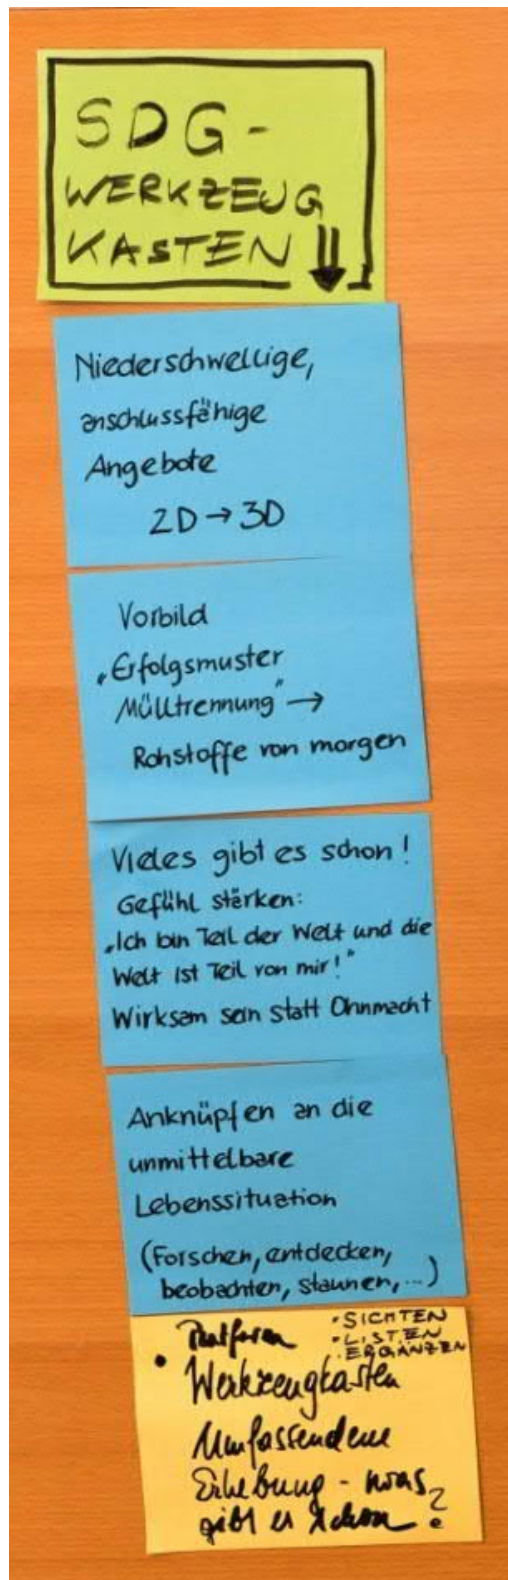 SDG-
WERKZEUG
KASTEN ⇓ 1
Niederschwellige,
anschlussfähige
Angebote
2D → 3D
Vorbild
„Erfolgsmuster
Mülltrennung" →
Rohstoffe von morgen
Vieles gibt es schon!
Gefühl stärken:
„Ich bin Teil der Welt und die
Welt ist Teil von mir!"
Wirksam sein statt Ohnmacht
Anknüpfen an die
unmittelbare
Lebenssituation
(Forschen, entdecken,
beobachten, staunen, ...)
• Plattform
• SICHTEN
• LISTEN
• ERGÄNZEN
Werkzeugkasten
Umfassendere
Erhebung - was
gibt es schon?